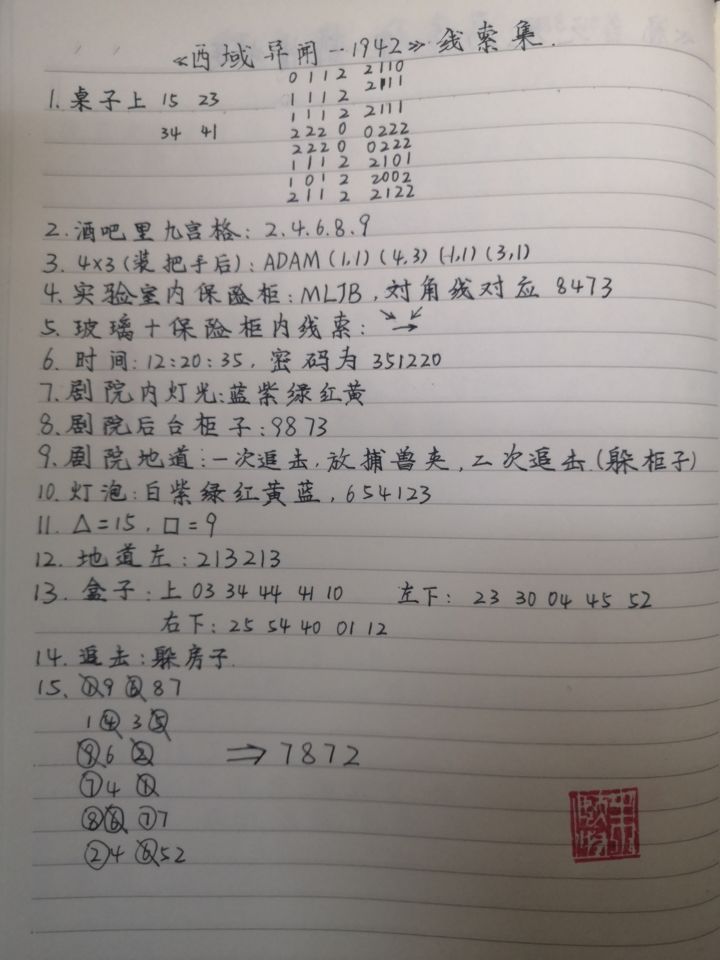 《西域异闻--1942》线索集.
0112 2110
1. 桌子上 15 23 1112 2111
1112 2111
34 41 2220 0222
2220 0222
1112 2101
1012 2002
2112 2122
2.酒吧里九宫格: 2.4.6.8.9
3. 4×3(装把手后): ADAM (1,1) (4,3) (-1,1) (3,1)
4. 实验室内保险柜: MLJB, 对角线对应 8473
5. 玻璃+保险柜内线索: ↘↙→
6. 时间: 12:20:35, 密码为 351220
7. 剧院内灯光:蓝紫绿红黄
8. 剧院后台柜子: 9873
9. 剧院地道:一次追击,放捕兽夹,二次追击.(躲柜子)
10. 灯泡:白紫绿红黄蓝, 654123
11. △=15, □=9
12. 地道左: 213213
13. 盒子:上 03 34 44 41 10 左下: 23 30 04 45 52
右下: 25 54 40 01 12
14. 追击:躲房子.
15. ①9⑥87
1④3⑤
⑨6② ⇒7872
⑦4①
⑧⑥⑦7
②4⑥52